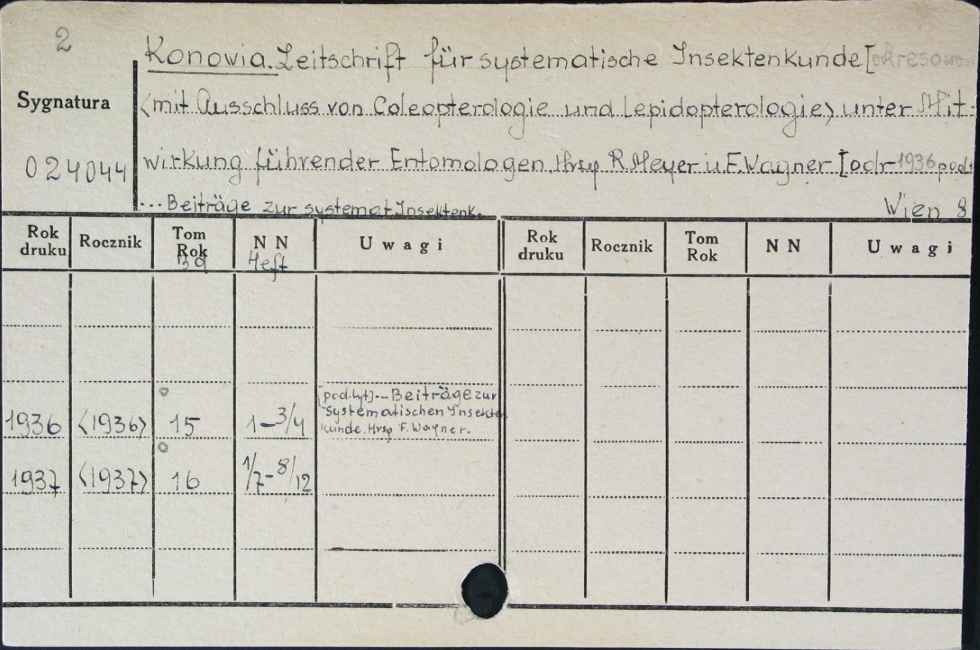 2
Konowia. Zeitschrift für systematische Insektenkunde [okresowe
Sygnatura
<mit Ausschluss von Coleopterologie und Lepidopterologie> unter Mit-
024044
wirkung führender Entomologen. Hrsg. R. Meyer u. F. Wagner [odr 1936 pod:
... Beiträge zur systemat. Insektenk.
Wien 8
Rok druku Rocznik Tom Rok N N U w a g i Rok druku Rocznik Tom Rok N N U w a g i
Bd Heft
[pod. tyt] ... Beiträge zur
Systematischen Insekten
kunde. Hrsg. F. Wagner.
1936 <1936> 15 1-3/4
1937 <1937> 16 1/7-8/12